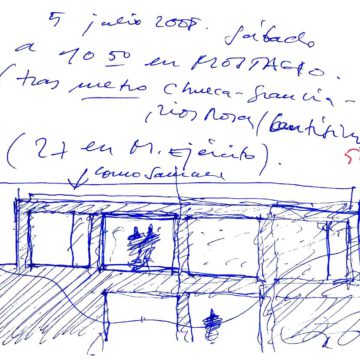 5 julio 2008. sábado
a 10 50 en MOSTACHO.
(tras metro Chueca-Gran vía-
Ríos Rosas/
(27 en M. Ejército).
como